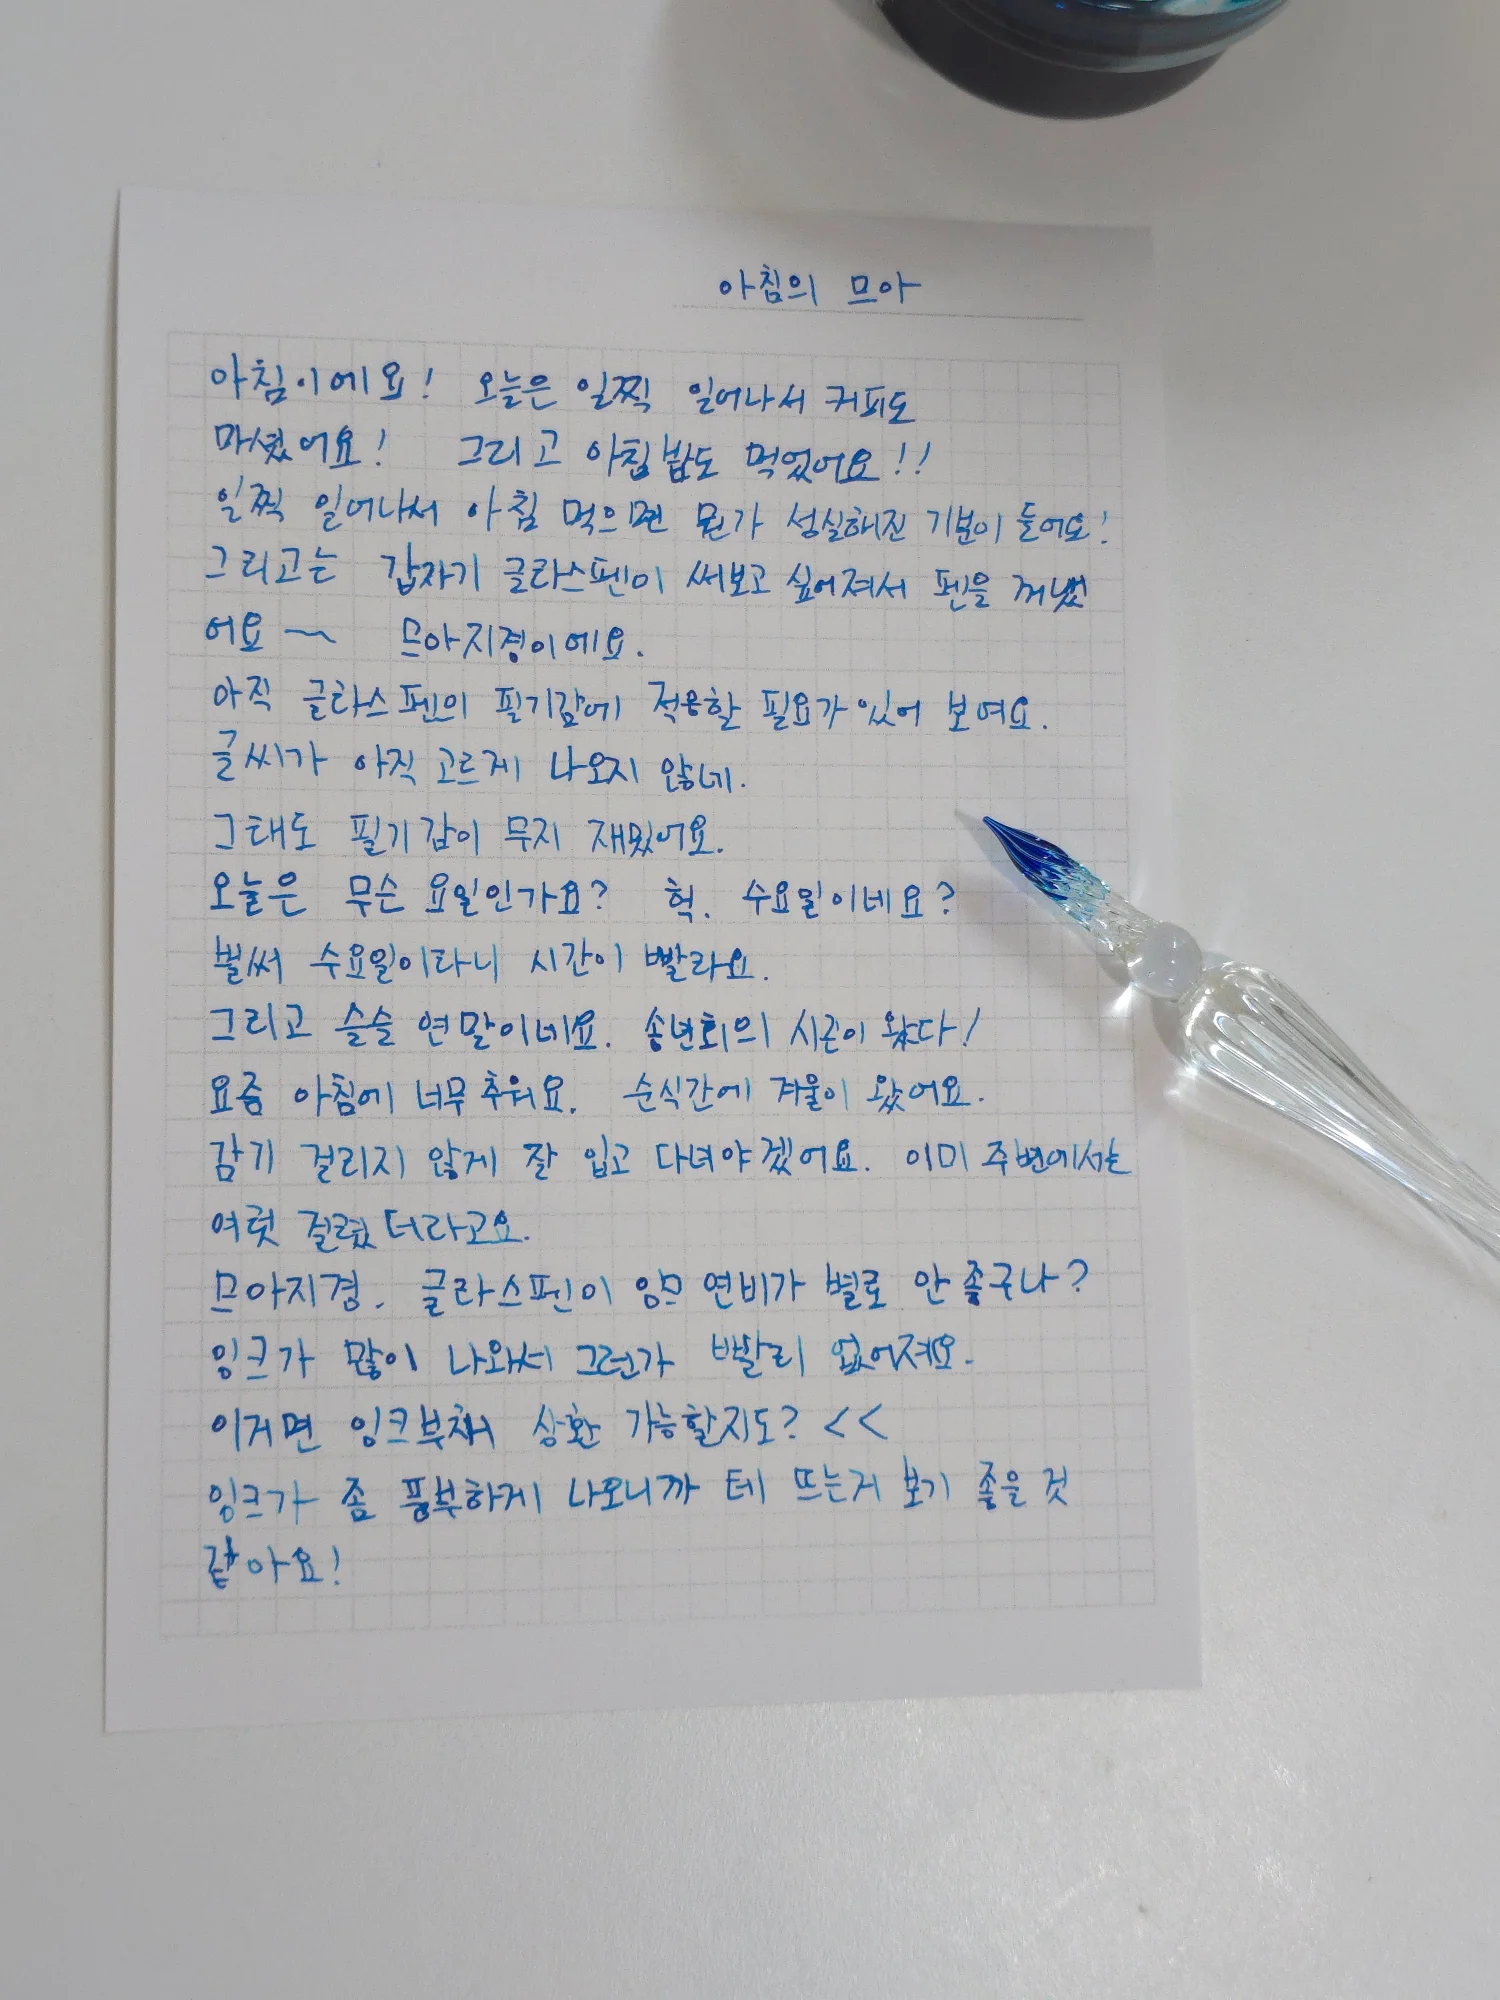 아침의 므아
아침이에요! 오늘은 일찍 일어나서 커피도
마셨어요! 그리고 아침밥도 먹었어요!!
일찍 일어나서 아침 먹으면 뭔가 성실해진 기분이 들어요!
그리고는 갑자기 글라스펜이 써보고 싶어져서 펜을 꺼냈
어요~ 므아지경이에요.
아직 글라스펜의 필기감에 적응할 필요가 있어 보여요.
글씨가 아직 고르게 나오지 않네.
그래도 필기감이 무지 재밌어요.
오늘은 무슨 요일인가요? 헉. 수요일이네요?
벌써 수요일이라니 시간이 빨라요.
그리고 슬슬 연말이네요. 송년회의 시즌이 왔다!
요즘 아침에 너무 추워요. 순식간에 겨울이 왔어요.
감기 걸리지 않게 잘 입고 다녀야겠어요. 이미 주변에서는
여럿 걸렸더라고요.
므아지경. 글라스펜이 은근 연비가 별로 안 좋구나?
잉크가 많이 나와서 그런가 빨리 없어져요.
이거면 잉크부채 상환 가능할지도? <<
잉크가 좀 풍부하게 나오니까 테 뜨는거 보기 좋을 것
같아요!